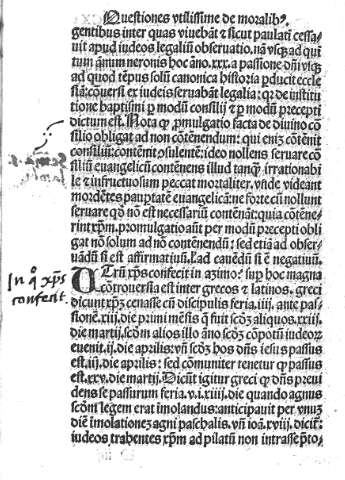 Questiones vtilissime de moralib⁹.
gentibus inter quas viuebāt ⁊ sicut paulati cessa-
uit apud iudeos legaliū obseruatio. nā vsq̨ ad qui
tum ānum neronis hoc āno .xxx. a passione dn̄i vsq̨
ad quod tēpus solū canonica historia ꝓducit eccle
siā: cōuersi ex iudeis seruabāt legalia: qꝛ de institu
tione baptismi ꝑ modū consilij ⁊ ꝑ modū precepti
dictum est. Nota ꝙ ꝓmulgatio facta de diuino cō
silio obligat ad non cōtenendum: qui eniz cōtēnit
consiliū: contemnit ɔsulentē: ideo nollens seruare cō
siliū euangelicū contēnens illud tanq̄ꝫ irrationabi
le ⁊ infructuosum peccat mortaliter. vnde videant
mordētes paupertatē euangelicā: ne forte cū nollunt
seruare qd̓ nō est necessariū contēnāt: quia cōtēne-
rint xp̄m. promulgatio aūt per modū precepti obli
gat nō solum ad nō contēnendū: sed etiā ad obser-
uādū si est affirmatiuū. Uel ad cauēdū si ē negatiuū.
In q̊ xp̄s
confecit.
UTrū xp̄s confecit in azimo? sup hoc magna
cōtrouersia est inter grecos ⁊ latinos. greci
dicunt xp̄m cenasse cū discipulis feria .iiij. ante pas
sionē .xiij. die primi mēsis q̄ fuit scōꝫ aliquos .xxiij.
die martij. scōm alios illo āno scōꝫ cōpotū iudeoꝝ
euenit .ij. die aprilis: vn̄ scōꝫ hos dn̄s iesus passus
est .iij. die aprilis: sed cōmuniter tenetur ꝙ passus
est .xxv. die martij. Dicūt igitur greci ꝙ dn̄s preui
dens se passurum feria .vi. xiiij. die quando agnus
scōm legem erat īmolandus: anticipauit per vnuꝫ
diē īmolationeꝫ agni paschalis. vn̄ ioā. xviij. dicit̄:
iudeos trahentes xp̄m ad pilatū non intrasse p̄to-